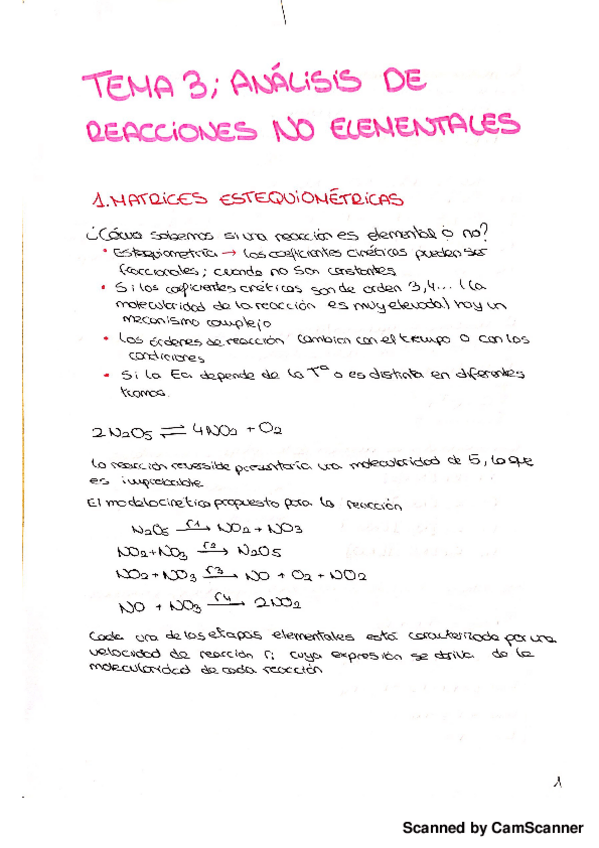 TEMA 3; ANÁLISIS DE
REACCIONES NO ELEMENTALES
1. MATRICES ESTEQUIOMÉTRICAS
¿Cómo sabemos si una reacción es elemental o no?
• Estequiometría → los coeficientes cinéticos pueden ser
fraccionales; cuando no son constantes
• Si los coeficientes cinéticos son de orden 3,4... (la
molecularidad de la reacción es muy elevada) hay un
mecanismo complejo
• Los órdenes de reacción cambian con el tiempo o con las
condiciones
• Si la Ea depende de la Tª o es distinta en diferentes
tramos.
2N2O5 ⇌ 4NO2 + O2
La reacción reversible presentaría una molecularidad de 5, lo que
es improbable
El modelo cinético propuesto para la reacción
N2O5 —r1→ NO2 + NO3
NO2+NO3 —r2→ N2O5
NO2+NO3 —r3→ NO + O2 + NO2
NO + NO3 —r4→ 2NO2
Cada una de las etapas elementales está caracterizada por una
velocidad de reacción ri cuya expresión se deriva de la
molecularidad de cada reacción
1
Scanned by CamScanner